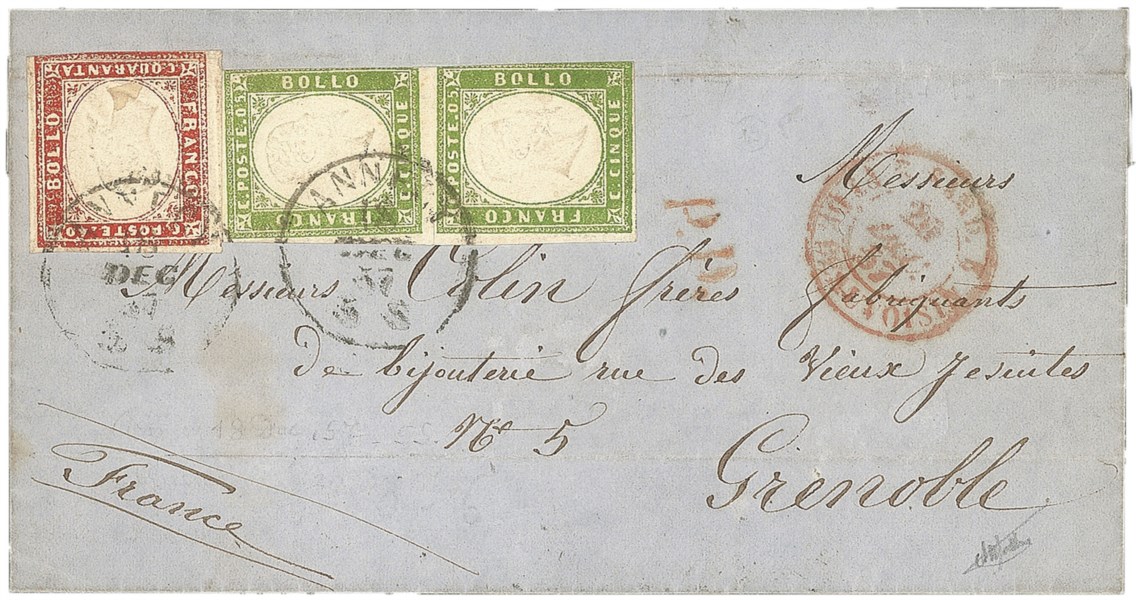 C. QUARANTA
BOLLO
FRANCO
C. POSTE. 40
BOLLO
C. POSTE. 05
C. CINQUE
FRANCO
BOLLO
C. POSTE. 05
C. CINQUE
FRANCO
DEC
ANN
DEC
57
P.D.
Messieurs
Messieurs Colin frères fabriquants
de bijouterie rue des Vieux Jesuites
N° 5
Grenoble
France